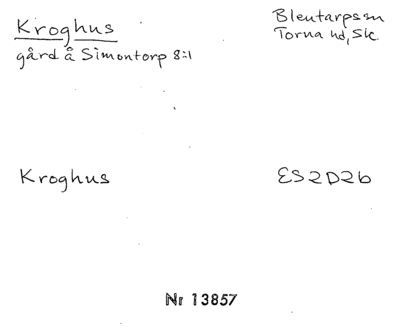 Kroghus
gård å Simontorp 8:1
Blentarps sn
Torna hd, Sk.
Kroghus
ES2D2b
Nr 13857